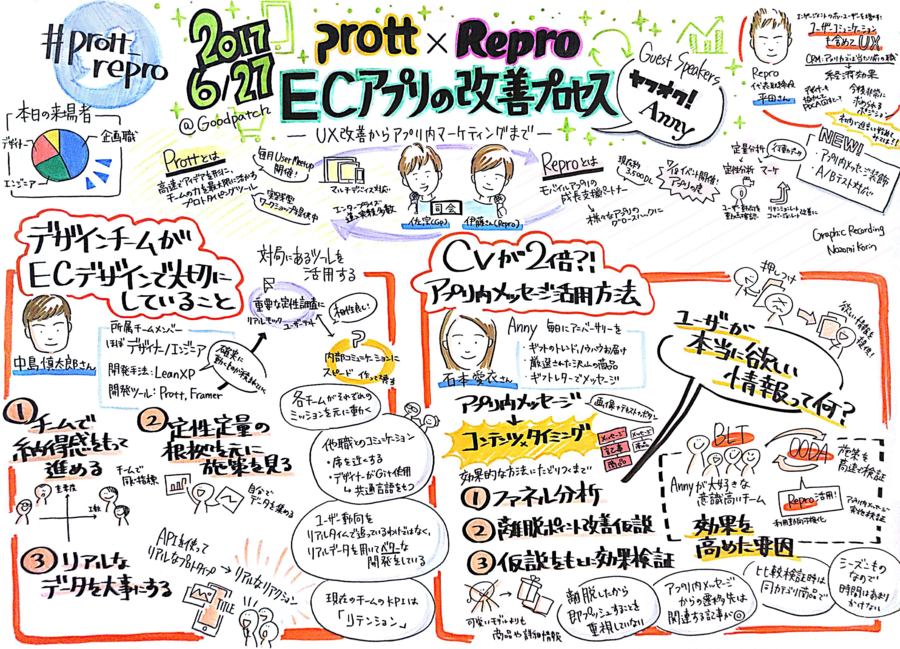 #prott_repro
2017
6/27
@Goodpatch
prott × Repro
ECアプリの改善プロセス
UX改善からアプリ内マーケティングまで
Guest Speakers
ヤフオク!
Anny
Repro
代表取締役
平田さん
ユーザーコミュニケーション
を含めてUX
本日の来場者
デザイナー
企画職
エンジニア
Prottとは
高速でアイデアを形に、
チームの力を最大限に活かす
プロトタイピングツール
毎月User Meetup
開催!
マルチデバイス対応
エンタープライズ
司会
佐宗(Gp)
伊藤さん(Repro)
Reproとは
モバイルアプリの
成長支援パートナー
様々なアプリの
グロースハックに
定量分析
定性分析
マーケ
NEW!
アプリ内メッセージ装飾
A/Bテスト対応
Graphic Recording
Nozomi Korin
デザインチームが
ECデザインで大切に
していること
中島慎太郎さん
所属チームメンバー
ほぼデザイナー/エンジニア
開発手法:LeanXP
開発ツール:Prott, Framer
対局にあるツールを
活用する
重要な定性調査に
相性良し!
内部コミュニケーションに
①チームで
納得感をもって
進める
チームで
同じ指標
②定性定量の
根拠を元に
施策を見る
自分で
データを集める
③リアルな
データを大事にする
APIを使って
リアルなプロトタイプ
→リアルなリアクション
各チームがそれぞれの
ミッションを元に動く
他職とのコミュニケーション
・席を近くする
・デザイナーがGit使用
↳共通言語をもつ
ユーザー動向を
リアルタイムで追っているわけではなく、
リアルデータを用いてベターな
開発をしている
現在のチームのKPIは
「リテンション」
CVが2倍?!
アプリ内メッセージ活用方法
石本愛衣さん
Anny 毎日にアニバーサリーを
・ギフトのトレンド、ノウハウお届け
・厳選された沢山の商品
・ギフトレターでメッセージ
押しつけ
欲しい情報を
提供!
ユーザーが
本当に欲しい
情報って何?
アプリ内メッセージ
コンテンツ×タイミング
画像+テキスト+ボタン
メッセージ
記事
商品
効果的な方法にたどりつくまで
①ファネル分析
②離脱ポイント改善仮説
③仮説をもとに効果検証
可愛いモデルよりも
商品や詳細情報
離脱したから
即プッシュすることを
重視していない
アプリ内メッセージ
からの遷移先は
関連する記事が◎
BLT
Annyが大好きな
意識高いチーム
OODA
施策を
高速で検証
Repro活用!
効果を
高めた要因
比較検証時は
同カテゴリ商品で
シーズンもの
なので
時間はあまり
かけない